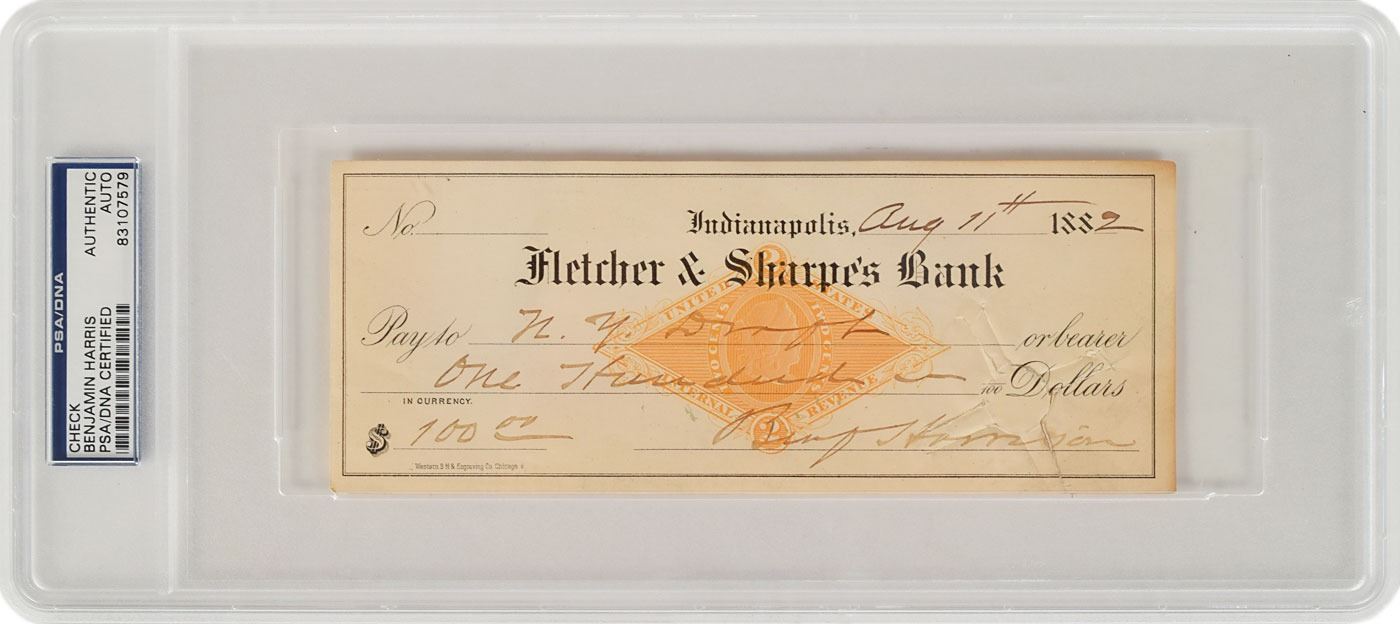 PSA/DNA
CHECK
BENJAMIN HARRIS
PSA/DNA CERTIFIED
AUTHENTIC
AUTO
83107579
No.
Indianapolis, Aug 11th 1882
Fletcher & Sharpe's Bank
UNITED STATES
Pay to N. Y. Draft or bearer
TWO CENTS
TWO CENTS
One Hundred /100 Dollars
INTERNAL REVENUE
IN CURRENCY.
$ 100 00
2
Benj Harrison
Western B.N. & Engraving Co. Chicago